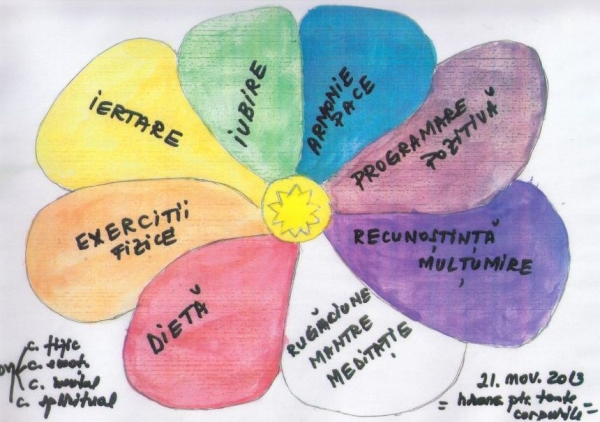 IERTARE
IUBIRE
ARMONIE
PACE
PROGRAMARE
POZITIVĂ
EXERCITII
FIZICE
RECUNOȘTINȚĂ
MULȚUMIRE
DIETĂ
RUGĂCIUNE
MANTRE
MEDITAȚIE
c. fizic
c. emot
c. mental
c. spiritual
21. nov. 2013
= hrana ptr toate
corpurile =